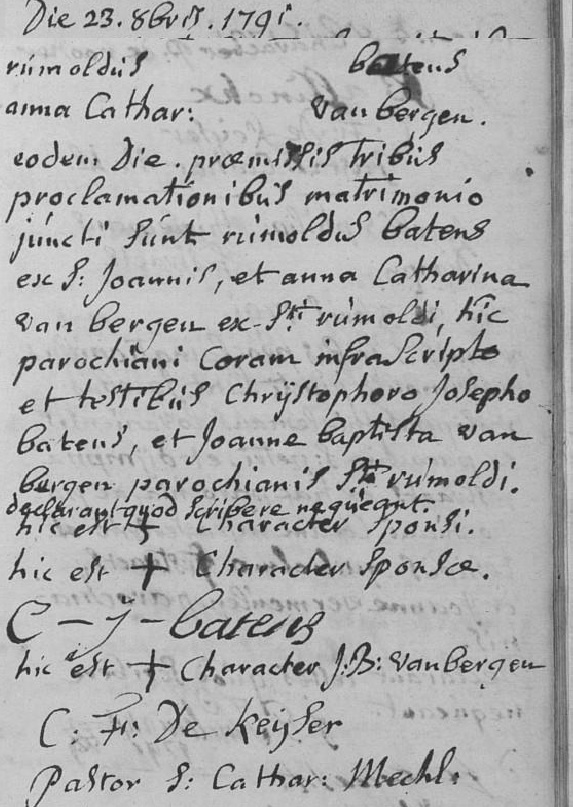 Die 23. 8bris. 1791.
rumoldus batens
anna Cathar: van bergen.
eodem Die. præmissis tribus
proclamationibus matrimonio
juncti sunt rumoldus batens
ex S: Joannis, et anna Catharina
van bergen ex Sti rumoldi, hic
parochiani Coram infrascripto
et testibus Chrÿstophoro Josepho
batens, et Joanne baptista van
bergen parochianis Sti rumoldi.
declarant quod scribere nequeant.
hic est + Character Sponsi.
hic est + Character Sponsæ.
C - J - batens
hic est + Character J: B: van bergen
C. F: De Keyser
Pastor S: Cathar: Mechl: